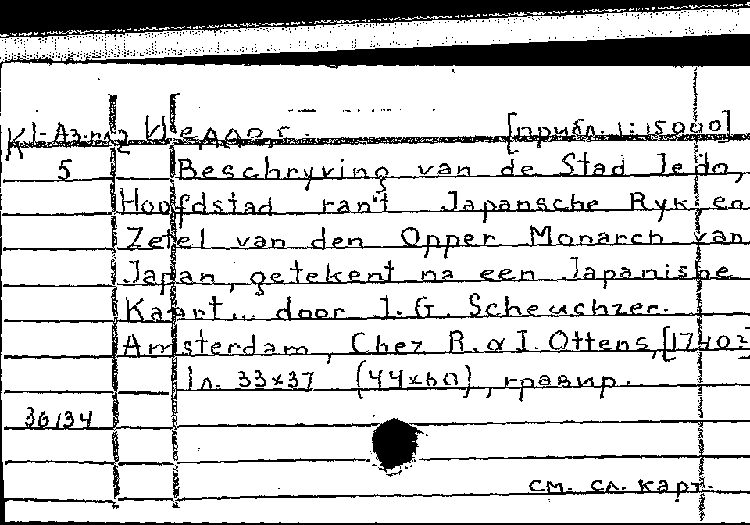 К 1-Аз-пл2 Иеддо, г. [прибл. 1:15000]
5 Beschryving van de Stad Jedo,
Hoofdstad van't Japansche Ryk, en
Zetel van den Opper Monarch van
Japan, getekent na een Japanishe
Kaart... door J. G. Scheuchzer.
Amsterdam, Chez R. & J. Ottens, [1740?
1 л. 33x37 (44x60), гравир.
30134
см. сл. карт.